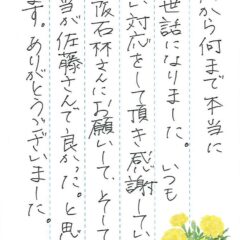 から何まで本当に
世話になりました。いつも
い対応をして頂き感謝してい
阪石林さんにお願いして、そして
当が佐藤さんで良かった。と思
ます。ありがとうございました。